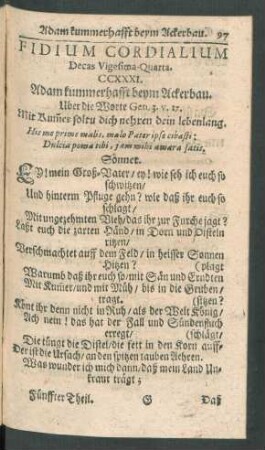 Adam kummerhafft beym Ackerbau. 97
FIDIUM CORDIALIUM
Decas Vigesima-Quarta.
CCXXXI.
Adam kummerhafft beym Ackerbau.
Uber die Worte Gen. 3. v. 17.
Mit Kum̃er soltu dich nehren dein lebenlang.
Hic me prime malis, malo Pater ipse cibasti;
Dulcia poma tibi, jam mihi amara satis.
Sonnet.
EY! mein Groß-Vater/ ey! wie seh ich euch so
schwitzen/
Und hinterm Pfluge gehn? wie daß ihr euch so
schlagt/
Mit ungezehmten Vieh/ das ihr zur Furche jagt?
Laßt euch die zarten Händ/ in Dorn und Disteln
ritzen/
Verschmachtet auff dem Feld/ in heisser Sonnen
Hitzen? (plagt
Warumb daß ihr euch so/ mit Sän und Erndten
Mit Kum̃er/ und mit Müh/ biß in die Gruben/
tragt. (sitzen?
Könt ihr denn nicht in Ruh/ als der Welt König/
Ach nein! das hat der Fall und Sündenfluch
erregt/ (schlägt/
Die tüngt die Distel/ die fett in den Korn auff-
Der ist die Ursach/ an den spitzen tauben Aehren.
Was wunder ich mich dann/ daß mein Land Un-
kraut trägt;
Fünffter Theil. G Daß